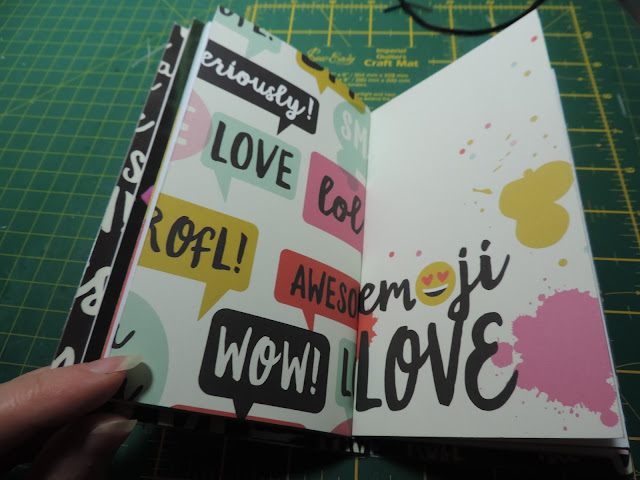 Imperial
Quilters
CRAFT MAT
eriously!
SM
LOVE
lol
ROfL!
AWESO
WOW!
L
emoji
LOVE